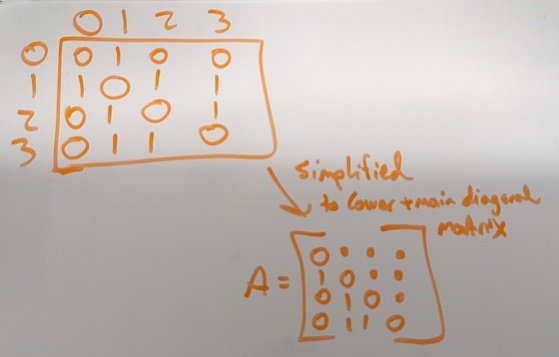 0 1 2 3
0 0 1 0 0
1 1 0 1 1
2 0 1 0 1
3 0 1 1 0
simplified
to lower + main diagonal
matrix
A =
0 . . .
1 0 . .
0 1 0 .
0 1 1 0